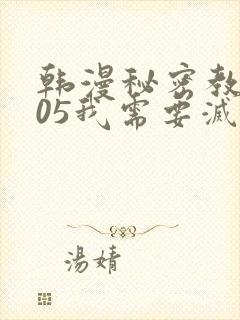 韩漫秘密教
05我需要滅
湯婧